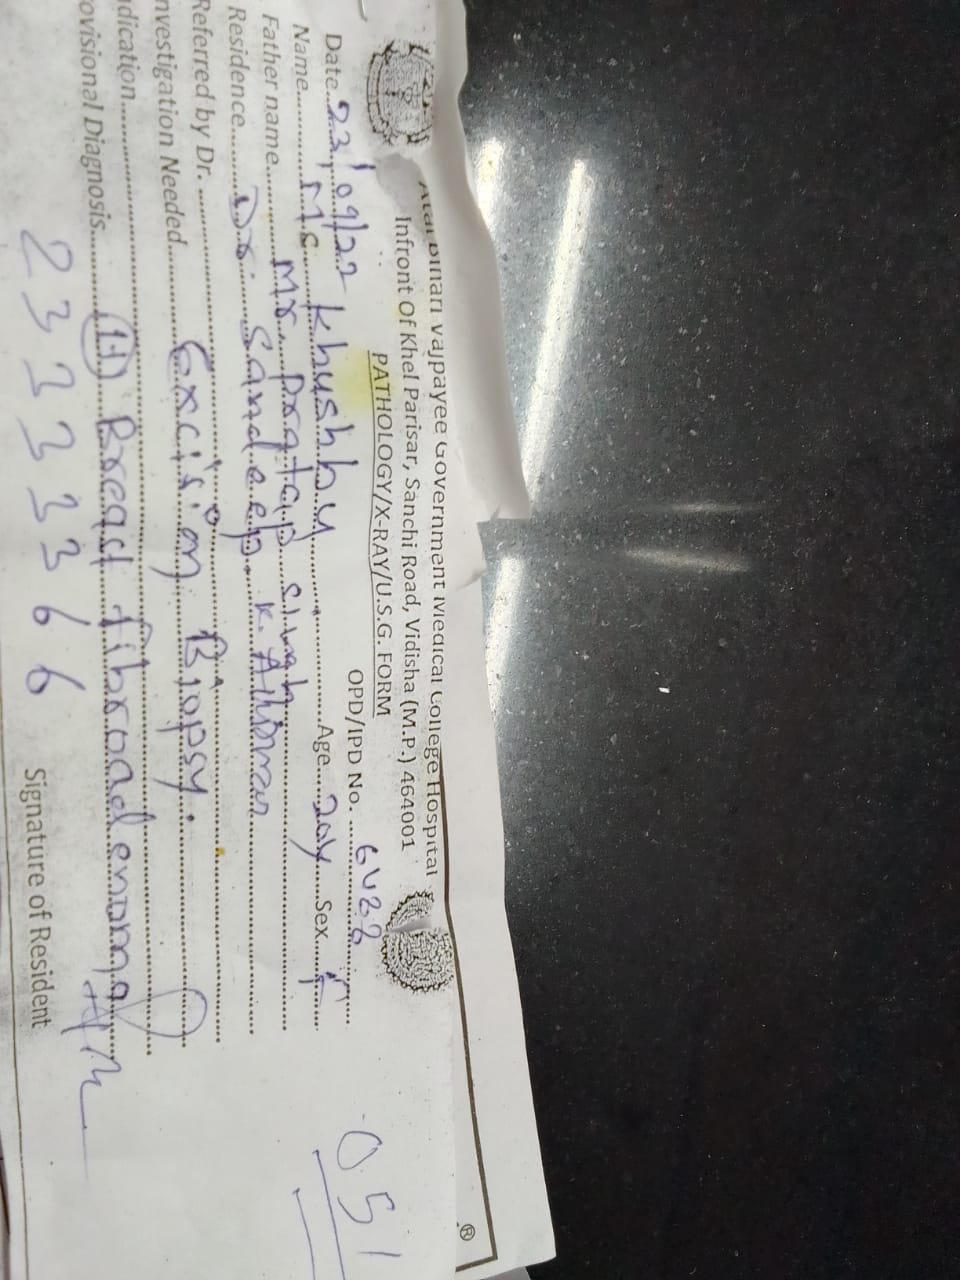 Vajpayee Government Medical College Hospital
Infront Of Khel Parisar, Sanchi Road, Vidisha (M.P.) 464001
PATHOLOGY/X-RAY/U.S.G. FORM
Date 23/09/22 OPD/IPD No.
Name Ms khushbu Age 20y Sex F
Father name Mr. Pratap Singh
Residence Dr. Sandeep K.
Referred by Dr.
nvestigation Needed Excision Biopsy.
dication
ovisional Diagnosis (Lt) Breast fibroadenoma
2333366 Signature of Resident
051
®